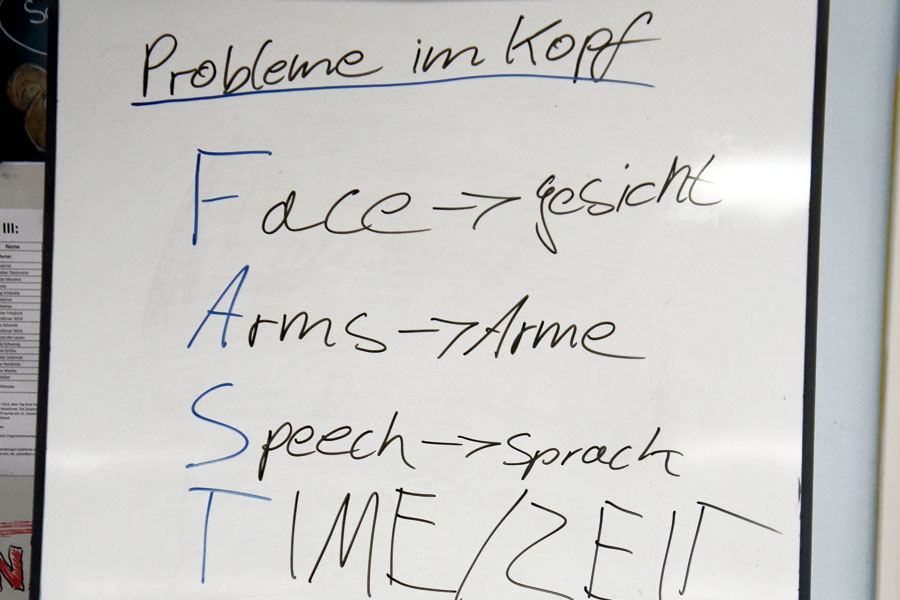 Probleme im Kopf
Face -> gesicht
Arms -> Arme
Speech -> Sprach
TIME/ZEIT
III:
Name